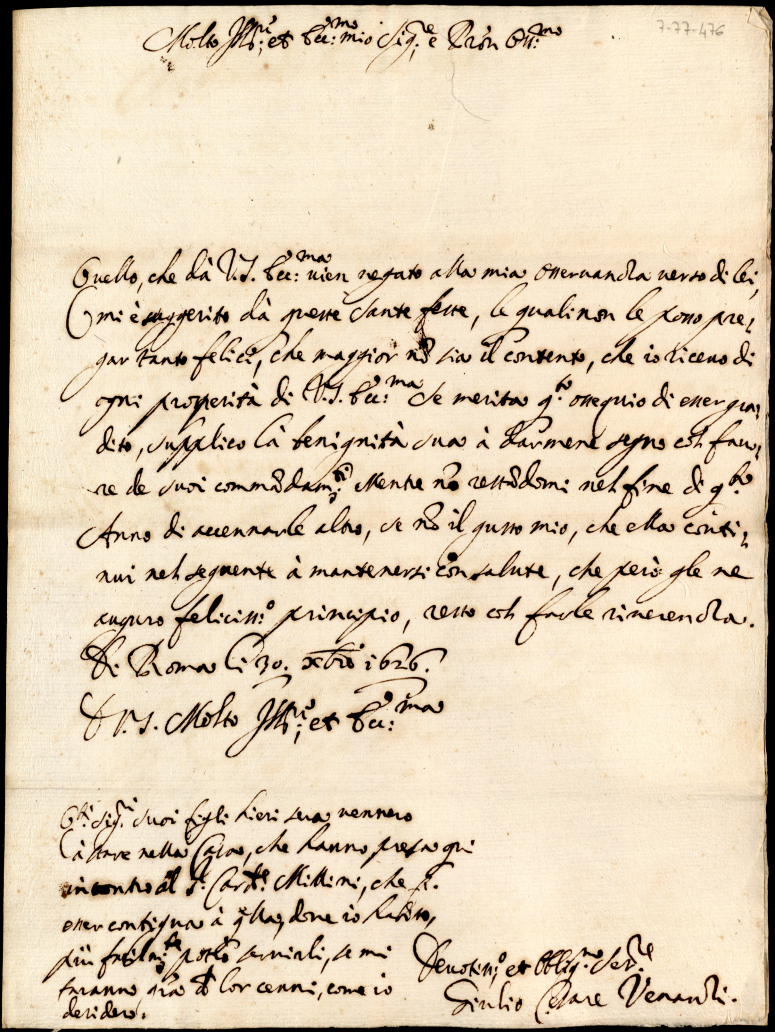 7-77-476
Molto Ill.re et Ecc.mo mio Sig.re e Pròn Oss.mo
Quello, che dà V.S. Ecc.ma vien negato alla mia osservanza verso di lei,
mi è suggerito dà queste sante feste, le quali non le posso pre,
gar tanto felici, che maggior nõ sia il contento, che io ricevo di
ogni prosperità di V.S. Ecc.ma Se merita q.to ossequio di esser gra,
dito, supplico la benignità sua à darmene segno col favo,
re de suoi commãdam.ti Mentre nõ restãdomi nel fine di q.to
Anno di accennarle altro, se nõ il gusto mio, che ella conti,
nui nel seguente à mantenersi con salute, che però gle ne
auguro feliciss.o principio, resto col farle riverenza.
Di Roma li 30. Xbre 1626.
D V.S. Molto Ill.re et Ecc.ma
sig.ri suoi figli hieri sera vennero
à stare nella Casa, che hanno presa qui
incontro al S.r Card.le Millini, che p.
esser contigua à q̃lla, dove io habito,
più facilm.te potrò servirli, se mi
faranno gra d lor cenni, come io
desidero.
Devotiss.o et Oblig.mo Ser.re
Giulio Cesare Venanzi.